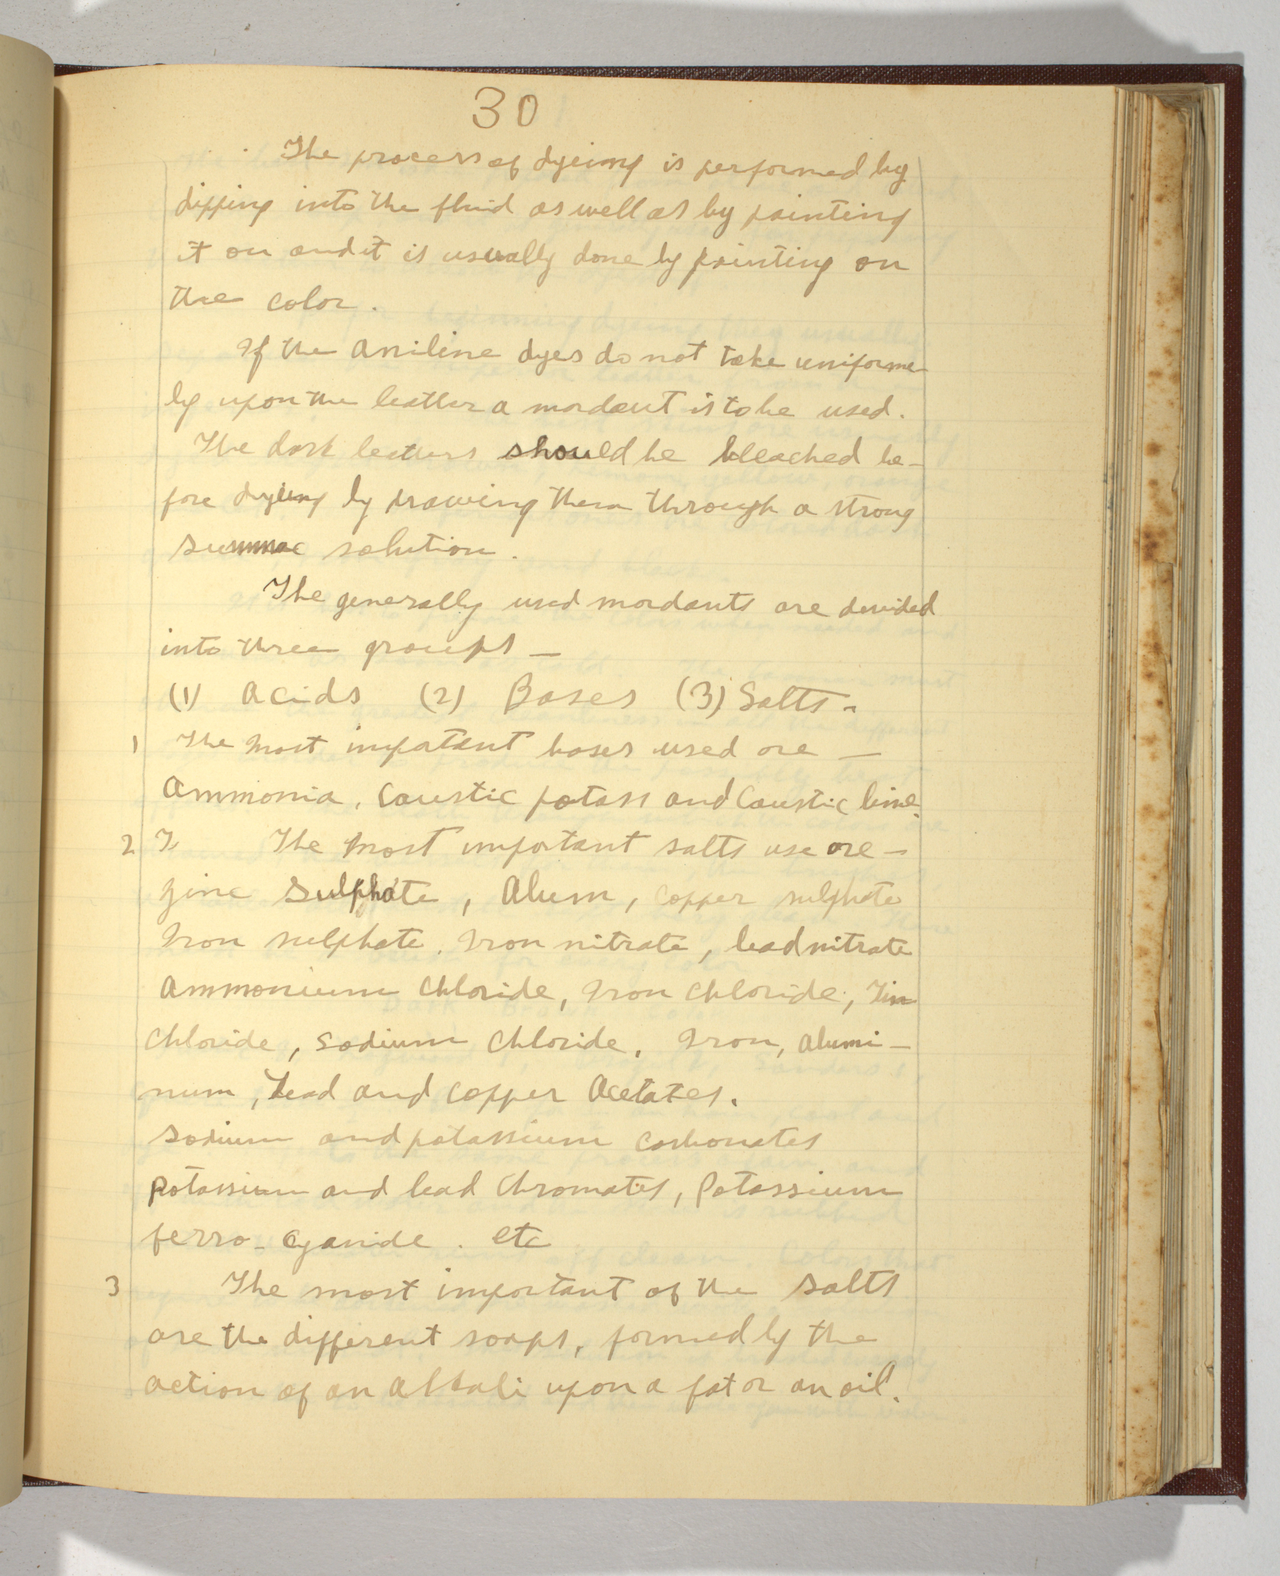 30
The process of dyeing is performed by
dipping into the fluid as well as by painting
it on and it is usually done by painting on
the color.
If the aniline dyes do not take uniforme-
ly upon the leather a mordant is to be used.
The dark leathers should be bleached be-
fore dyeing by drawing them through a strong
summac solution.
The generally used mordants are devided
into three groups —
(1) Acids (2) Bases (3) Salts.
1 The most impotant bases used are —
Ammonia, Caustic potass and Caustic lime.
2 The most important salts use are —
Zinc Sulphate, Alum, copper sulphate
Iron sulphate. Iron nitrate, lead nitrate
Ammonium Chloride, Iron Chloride, Tin
Chloride, Sodium Chloride, Iron, Alumi-
num, Lead and Copper Acetates.
Sodium and potassium carbonates
Potassium and lead Chromates, Potassium
ferro-cyanide. etc
3 The most important of the salts
are the different soaps, formed by the
action of an alkali upon a fat or an oil.